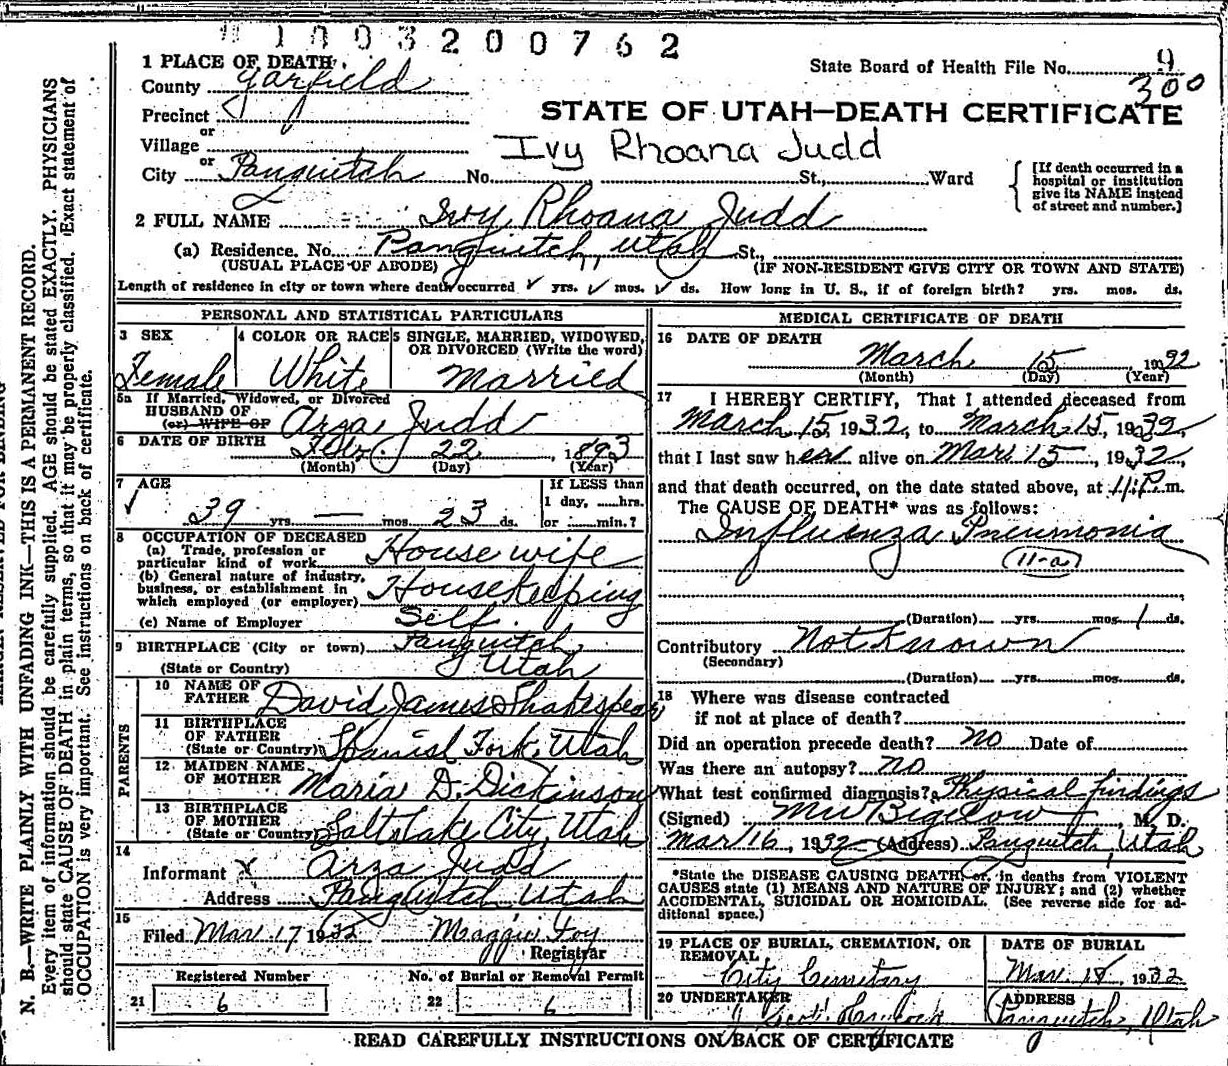 1003200762
1 PLACE OF DEATH
State Board of Health File No. 9
300
County Garfield
STATE OF UTAH—DEATH CERTIFICATE
Precinct
or
Village
Ivy Rhoana Judd
or
City Panguitch No. St., Ward
[If death occurred in a hospital or institution give its NAME instead of street and number.]
2 FULL NAME Ivy Rhoana Judd
(a) Residence, No. Panguitch, Utah St.,
(USUAL PLACE OF ABODE) (IF NON-RESIDENT GIVE CITY OR TOWN AND STATE)
Length of residence in city or town where death occurred yrs. mos. ds. How long in U. S., if of foreign birth? yrs. mos. ds.
PERSONAL AND STATISTICAL PARTICULARS
3 SEX
Female
4 COLOR OR RACE
White
5 SINGLE, MARRIED, WIDOWED, OR DIVORCED (Write the word)
Married
5a If Married, Widowed, or Divorced
HUSBAND OF
(or) WIFE OF Arza Judd
6 DATE OF BIRTH Feb. 22, 1893
(Month) (Day) (Year)
7 AGE
39 yrs. — mos. 23 ds.
If LESS than
1 day, hrs.
or min.?
8 OCCUPATION OF DECEASED
(a) Trade, profession or
particular kind of work House wife
(b) General nature of industry,
business, or establishment in
which employed (or employer) Housekeeping
(c) Name of Employer Self.
9 BIRTHPLACE (City or town) Panguitch
(State or Country) Utah
PARENTS
10 NAME OF
FATHER David James Shakespear
11 BIRTHPLACE
OF FATHER
(State or Country) Spanish Fork, Utah
12 MAIDEN NAME
OF MOTHER Maria D. Dickinson
13 BIRTHPLACE
OF MOTHER
(State or Country) Salt Lake City, Utah
14
Informant x Arza Judd
Address Panguitch Utah
15
Filed Mar 17 1932 Maggie Foy
Registrar
Registered Number No. of Burial or Removal Permit
21 6 22 6
MEDICAL CERTIFICATE OF DEATH
16 DATE OF DEATH
March 15 1932
(Month) (Day) (Year)
17 I HEREBY CERTIFY, That I attended deceased from
March 15, 1932, to March 15, 1932,
that I last saw her alive on Mar 15, 1932,
and that death occurred, on the date stated above, at 11 P.m.
The CAUSE OF DEATH* was as follows:
Influenza Pneumonia
11-a
(Duration) yrs. mos. 1 ds.
Contributory Not Known
(Secondary)
(Duration) yrs. mos. ds.
18 Where was disease contracted
if not at place of death?
Did an operation precede death? no Date of
Was there an autopsy? no
What test confirmed diagnosis? Physical findings
(Signed) Bigelow, M. D.
Mar 16, 1932 (Address) Panguitch, Utah
*State the DISEASE CAUSING DEATH, or, in deaths from VIOLENT
CAUSES state (1) MEANS AND NATURE OF INJURY; and (2) whether
ACCIDENTAL, SUICIDAL OR HOMICIDAL. (See reverse side for ad-
ditional space.)
19 PLACE OF BURIAL, CREMATION, OR
REMOVAL
City Cemetery
DATE OF BURIAL
Mar. 18, 1932
20 UNDERTAKER
ADDRESS
Panguitch, Utah
READ CAREFULLY INSTRUCTIONS ON BACK OF CERTIFICATE
N. B.—WRITE PLAINLY WITH UNFADING INK—THIS IS A PERMANENT RECORD.
Every item of information should be carefully supplied. AGE should be stated EXACTLY. PHYSICIANS
should state CAUSE OF DEATH in plain terms, so that it may be properly classified. Exact statement of
OCCUPATION is very important. See instructions on back of certificate.